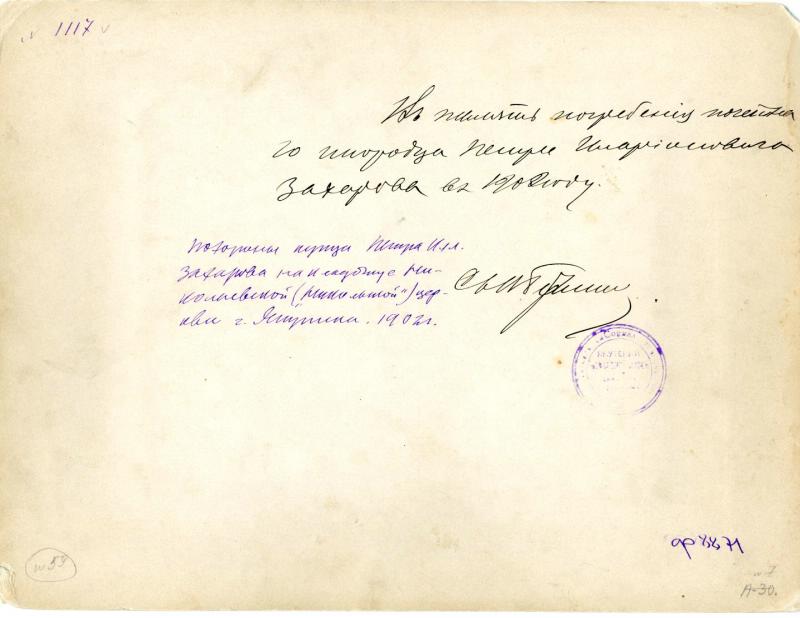 1117
Въ память погребенія почетна
го инородца Петра Иларіоновича
Захарова въ 1902 году.
Похороны купца Петра Ил.
Захарова на кладбище Ни-
колаевской ("Никольской") цер-
кви г. Якутска. 1902 г.
ф 8871
№ 59
№ 7
А-30.